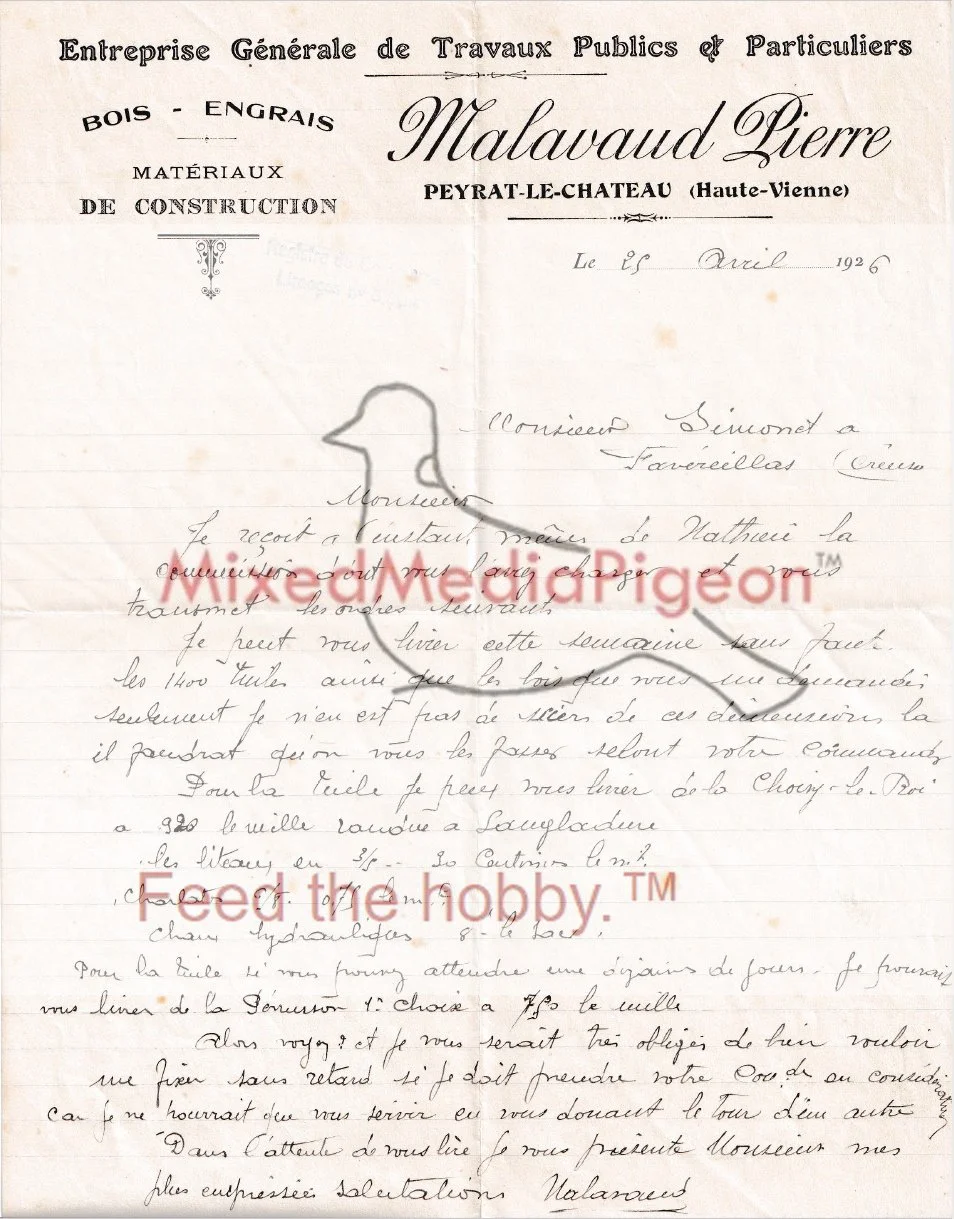 Entreprise Générale de Travaux Publics & Particuliers
BOIS - ENGRAIS
MATÉRIAUX
DE CONSTRUCTION
Malavaud Pierre
PEYRAT-LE-CHATEAU (Haute-Vienne)
Le 25 Avril 1926
Monsieur Simonet a
(Creuse
Monsieur
Je reçoit a l'instant même de Mathieu la
commission dont vous l'aviez charger et vous
transmet les ordres suivant
Je peut vous livrer cette semaine sans faut
les 1400 tuiles ainsi que les bois que vous me demandés
seulement je n'en est pas de scier de ces dimensions la
il faudrat qu'on vous les fasser selont votre commande
Pour la tuile je peux vous livrer de la Choisy-le-Roi
a le mille randue a
les liteaux en 30 Centimes le m.
0,75 le m.
chaux hydrauliques 8 - le sac.
Pour la tuile si vous pouvez attendre une dizaine de jours. Je pourrait
vous livrer de la Pérusson 1r Choix a le mille
Alors voyez ? et je vous serait très obligés de bien vouloir
me fixer sans retard si je doit prendre votre Com.de en considération
car je ne pourrait que vous servir en vous donant le tour d'un autre
Dans l'attente de vous lire je vous présente Monsieur mes
plus empressées salutations Malavaud
MixedMediaPigeon™
Feed the hobby.™